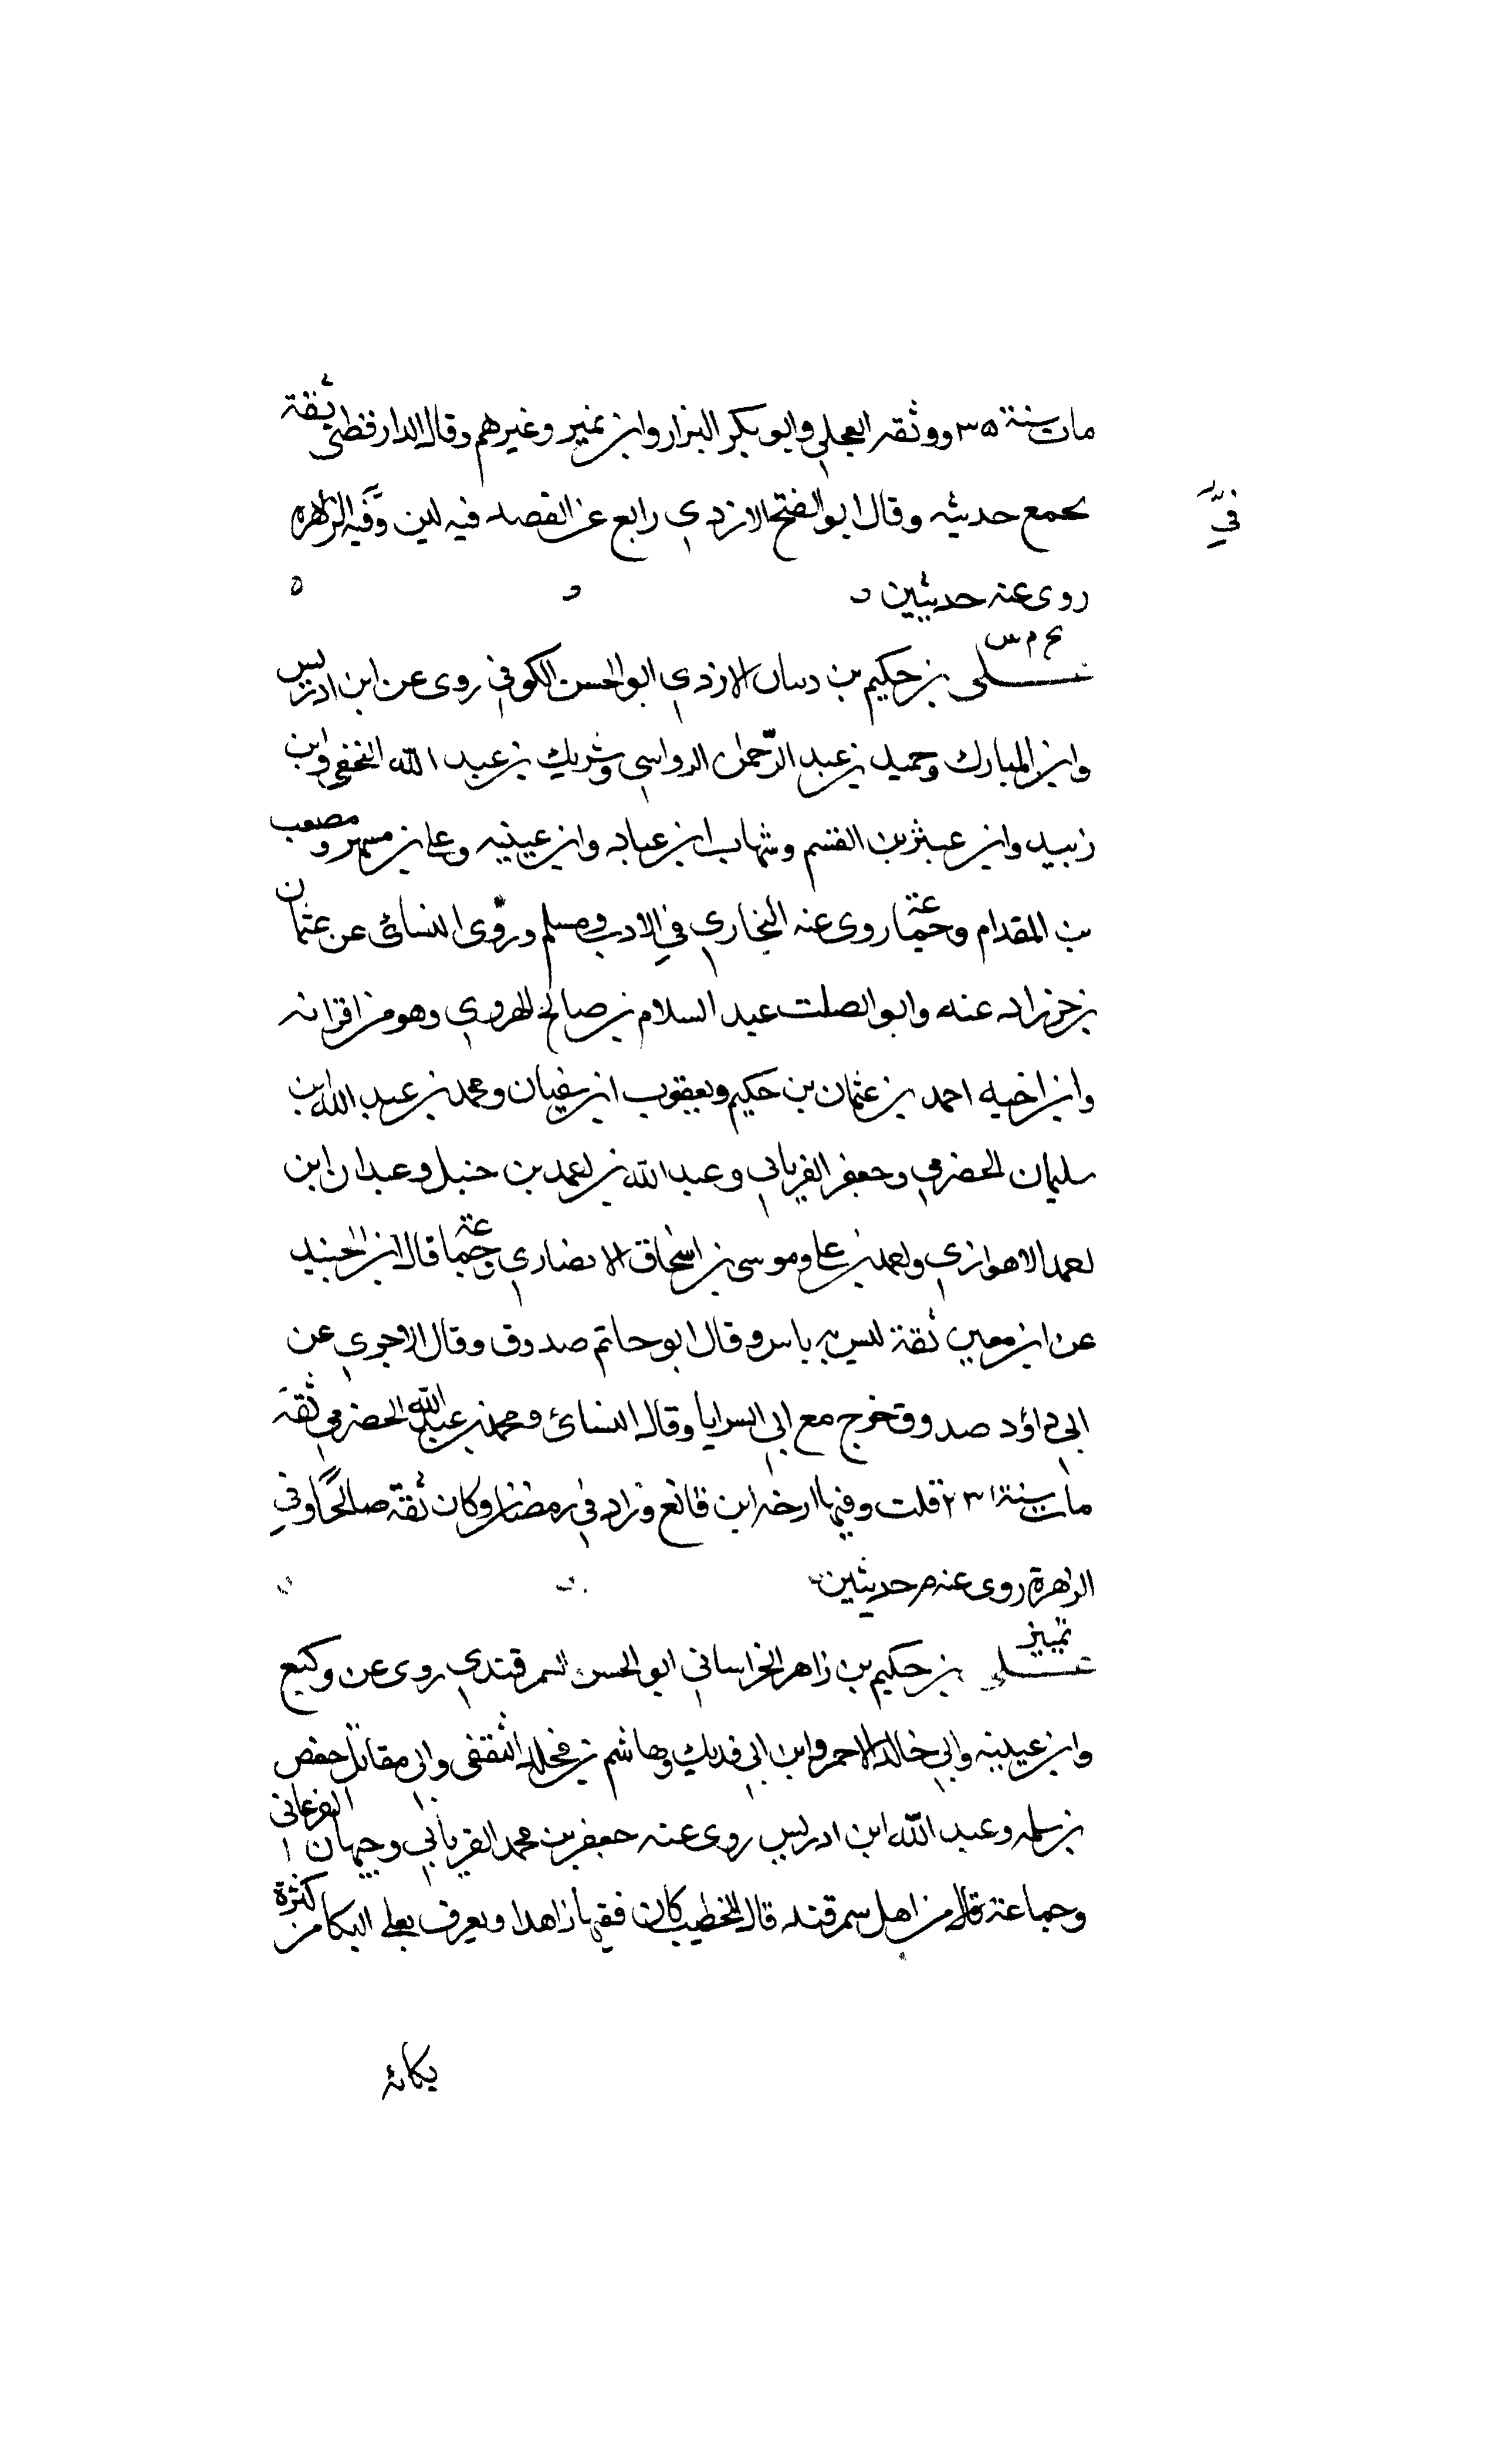 مات سنة ٣٥ ووثقه العجلي وابو بكر البزار وابن نمير وغيرهم وقال الدارقطني ثقة
يجمع حديثه وقال ابو الفتح الازدي رايع عن القصد فيه لين وَفيه الزهره
فيّ
روى عنه حديثين
خ م س
علي بن حكيم بن دبيان الازدي ابو الحسن الكوفي روى عن ابن ادريس
وابن المبارك وحميد بن عبد الرحمان الرواسي وشريك بن عبد الله النخعي وابن
زبيد وابن عبثر بن القسم وشهاب ابن عباد وابن عيينه وعلي بن مسهر ومصعب
بن المقدام وجماعة روى عنه البخاري في الادب ومسلم وروى النسائي عن عثمان
بن خرزاد عنه وابو الصلت عبد السلام بن صالح الهروي وهو من اقرانه
وابن اخيه احمد بن عثمان بن حكيم ويعقوب ابن سفيان ومحمد بن عبد الله بن
سليمان الحضرمي وجعفر الفريابي وعبد الله بن احمد بن حنبل وعبدان ابن
احمد الاهوازي واحمد بن علي وموسى بن اسحاق الانصاري وجماعة قال ابن الجنيد
عن ابن معين ثقة ليس به باس وقال ابو حاتم صدوق وقال الاجري عن
ابي داؤد صدوق خرج مع ابي السرايا وقال النسائي ومحمد بن عبد الله الحضرمي ثقة
مات سنة ٢٣١ قلت وفيها ارخه ابن قانع وزاد في رمضان وكان ثقة صالحًا وفي
الزهرة روى عنه م حديثين
تمييز
علي بن حكيم بن زاهر الخراساني ابو الحسن السمرقندي روى عن وكيع
وابن عيينه وابي خالد الاحمر وابن ابي فديك وهاشم بن مخلد الثقفي وابي مقاتل حفص
بن سلمه وعبد الله ابن ادريس روى عنه جعفر بن محمد الفريابي وجيهان الفرغاني
وجماعة قال من اهل سمرقند قال الخطيب كان فقيها زاهدا ويعرف بعلي البكا من كثرة
بكائه